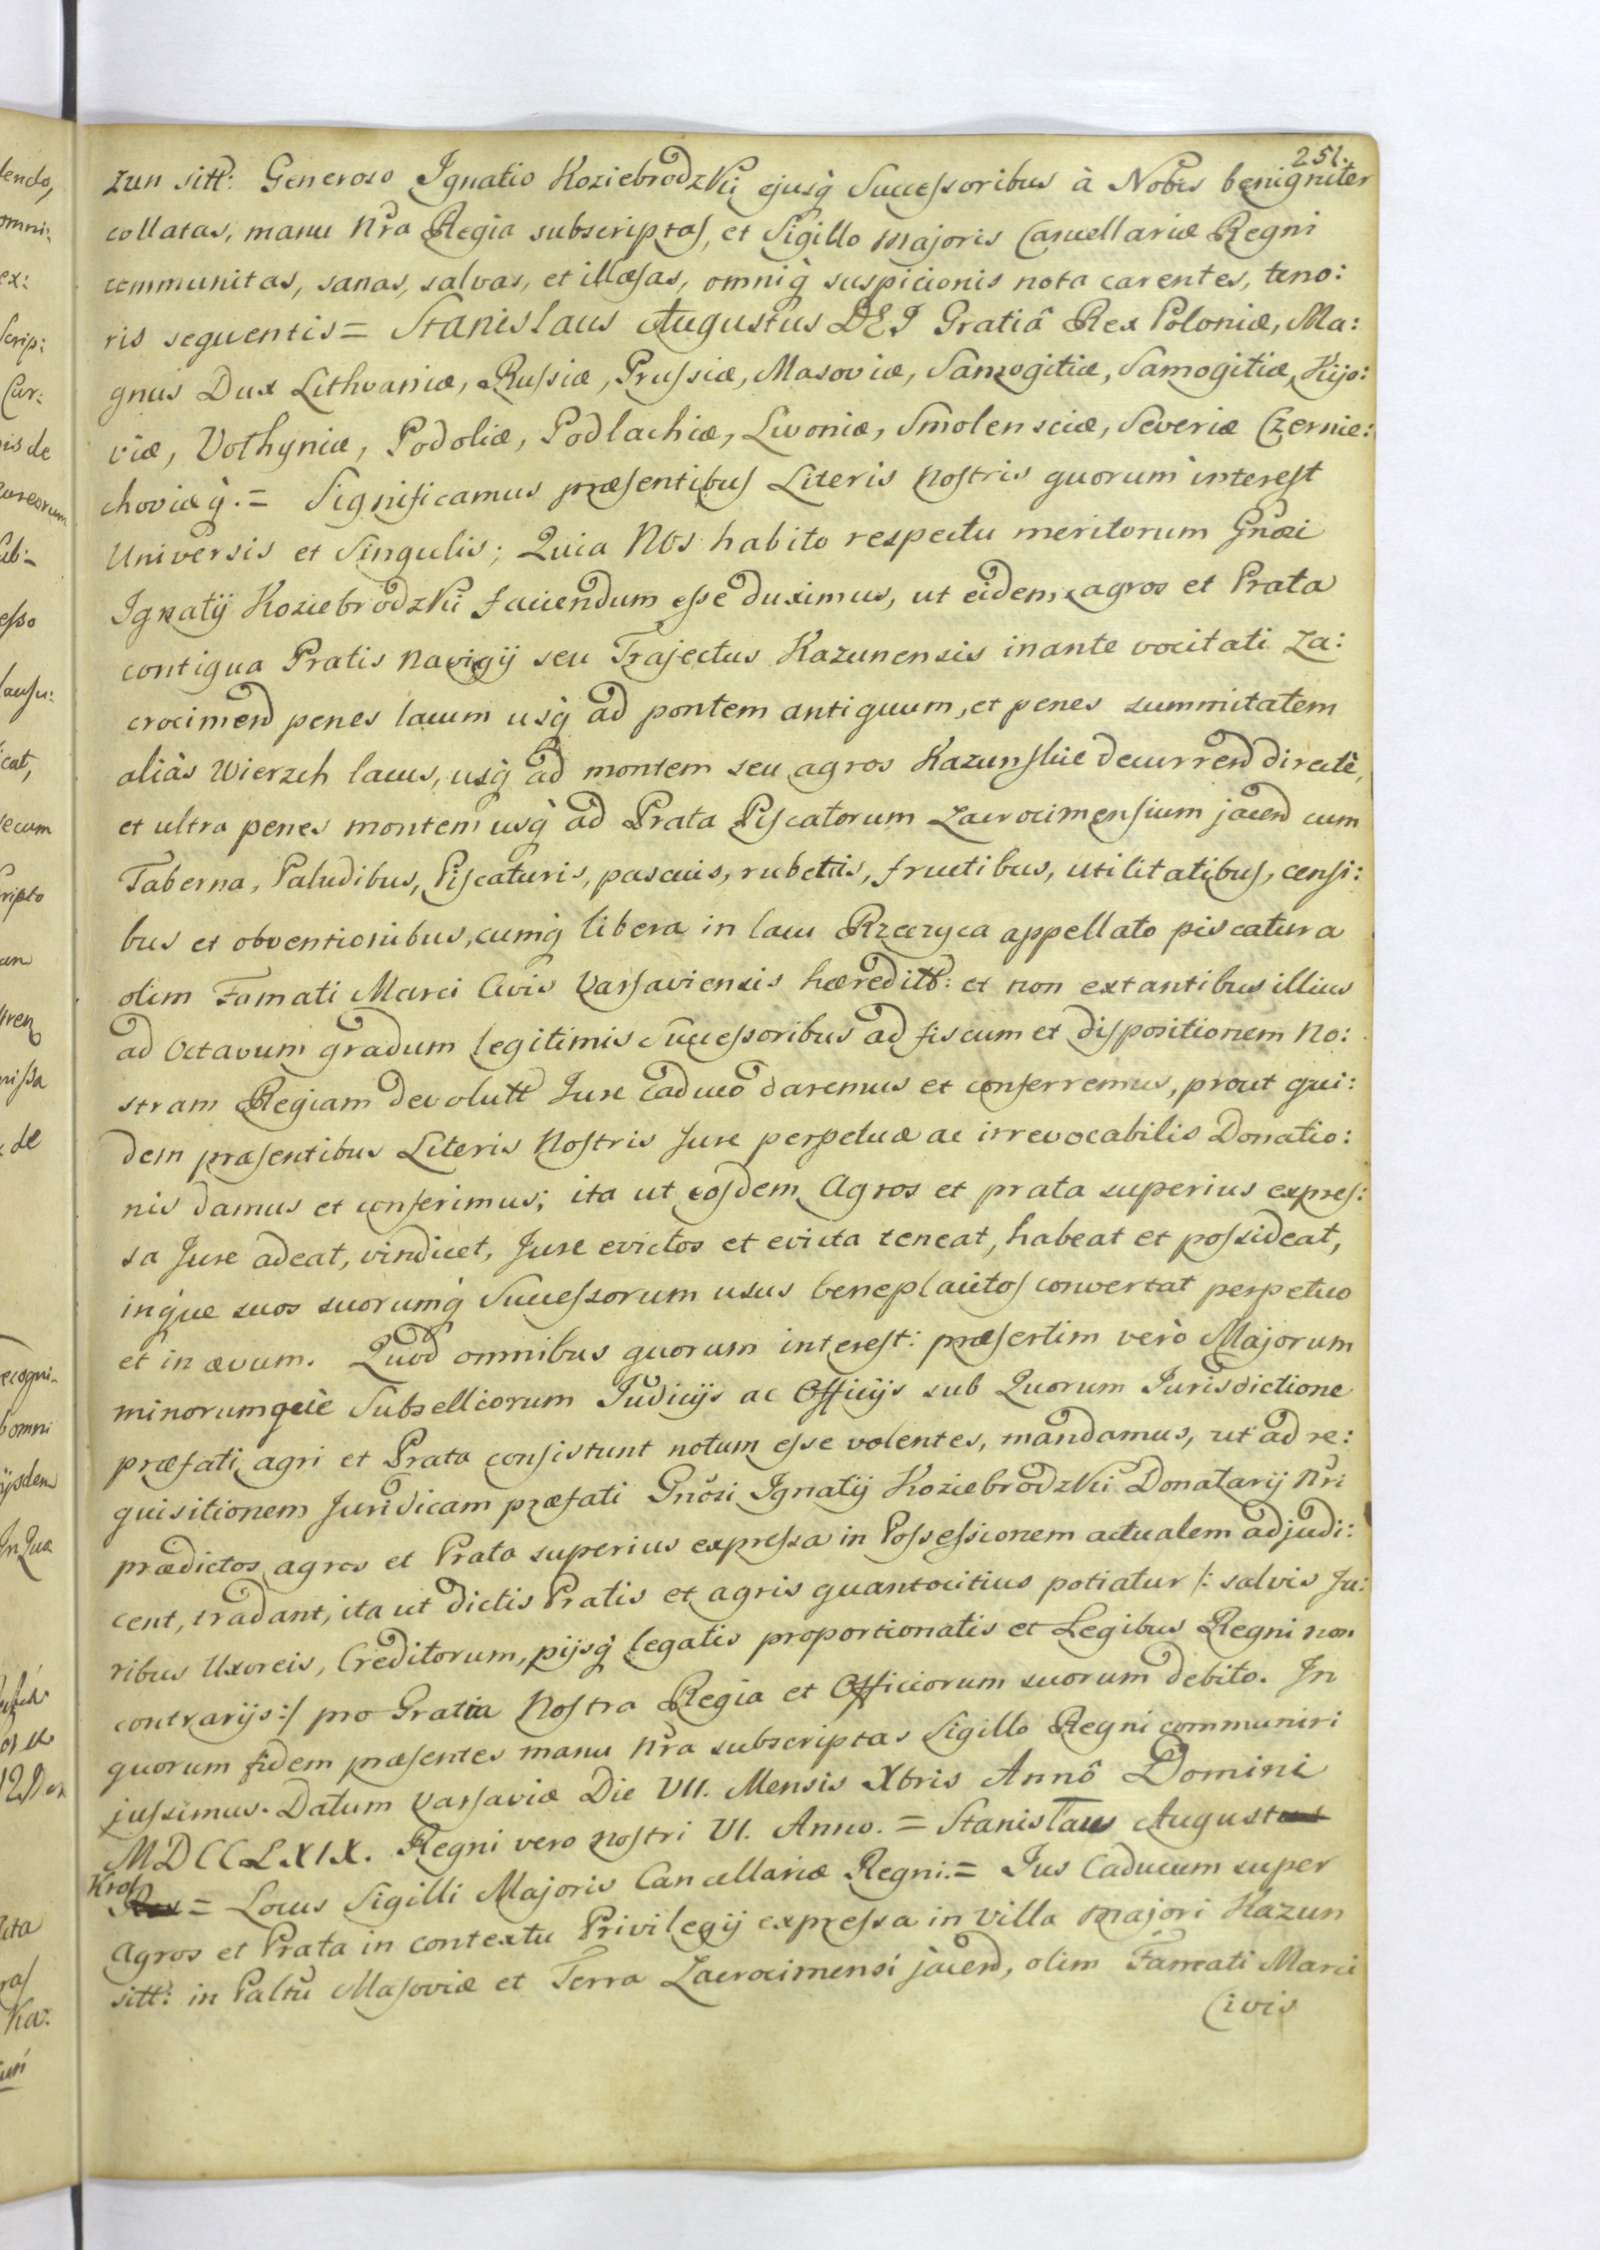 251.
zun sitt: Generoso Ignatio Koziebrodzkii ejusq̀ Successoribus à Nobis benigniter
collatas, manu Nra Regia subscriptas, et Sigillo Majoris Cancellariæ Regni
communitas, sanas, salvas, et illæsas, omniq̀ suspicionis nota carentes, teno:
ris sequentis = Stanislaus Augustus DEI Gratiâ Rex Poloniæ, Ma:
gnus Dux Lithvaniæ, Russiæ, Prussiæ, Masoviæ, Samogitiæ, Samogitiæ, Kijo:
viæ, Volhyniæ, Podoliæ, Podlachiæ, Livoniæ, Smolensciæ, Severiæ Czernie:
choviæq̀. = Significamus præsentibus Literis Nostris quorum interest
Universis et Singulis; Quia Nos habito respectu meritorum Gnosi
Ignatij Koziebrodzkii faciendum esse duximus, ut eidem agros et Prata
contigua Pratis Navigij seu Trajectus Kazunensis inante vocitati Za:
crocimend penes lacum usq̀ ad pontem antiquum, et penes summitatem
aliàs Wierzch lacus, usq̀ ad montem seu agros Kazunskie decurrend directè,
et ultra penes montem usq̀ ad Prata Piscatorum Zacrocimensium jacend cum
Taberna, Paludibus, Piscaturis, pascuis, rubetis, fructibus, utilitatibus, censi:
bus et obventionibus, cumq̀ libera in lacu Rzeczyca appellato piscatura
olim Famati Marci Civis Varsaviensis hæreditt: et non extantibus illius
ad Octavum gradum legitimis Successoribus ad fiscum et dispositionem No:
stram Regiam devolutt Jure Caduco daremus et conferremus, prout qui:
dem præsentibus Literis Nostris Jure perpetuæ ac irrevocabilis Donatio:
nis damus et conferimus; ita ut eosdem Agros et prata superius expres:
sa Jure adeat, vindicet, Jure evictos et evicta teneat, habeat et possideat,
inque suos suorumq̀ Successorum usus beneplacitos convertat perpetuo
et in ævum. Quod omnibus quorum interest: præsertim verò Majorum
minorumquè Subselliorum Judicijs ac Officijs sub Quorum Jurisdictione
præfati agri et Prata consistunt notum esse volentes, mandamus, ut ad re:
quisitionem Juridicam præfati Gnosi Ignatij Koziebrodzkii Donatarij Nri
prædictos agros et Prata superius expressa in Possessionem actualem adjudi:
cent, tradant, ita ut dictis Pratis et agris quantocitius potiatur /: salvis Ju:
ribus Uxoreis, Creditorum, pijsq̀ legatis proportionatis et Legibus Regni non
contrarijs :/ pro Gratia Nostra Regia et Officiorum suorum debito. In
quorum fidem præsentes manu Nra subscriptas Sigillo Regni communiri
jussimus. Datum Varsaviæ Die VII. Mensis Xbris Annô Domini
MDCCLXIX. Regni vero nostri VI. Anno. = Stanislaus Augustus
Krol
Rex = Locus Sigilli Majoris Cancellariæ Regni. = Jus Caducum super
Agros et Prata in contextu Privilegij expressa in Villa Majori Kazun
sitt: in Paltu Masoviæ et Terra Zacrocimensi jacend, olim Famati Marci
Civis